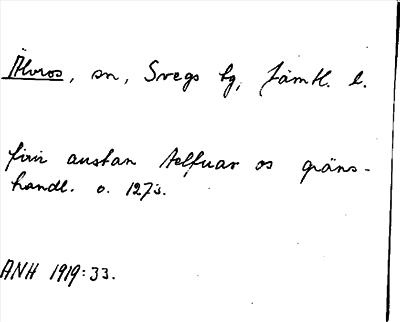 Älvros, sn, Svegs tg, Jämtl. l.
firir austan Aelfuar os gräns-
handl. o. 1273.
ANH 1919:33.